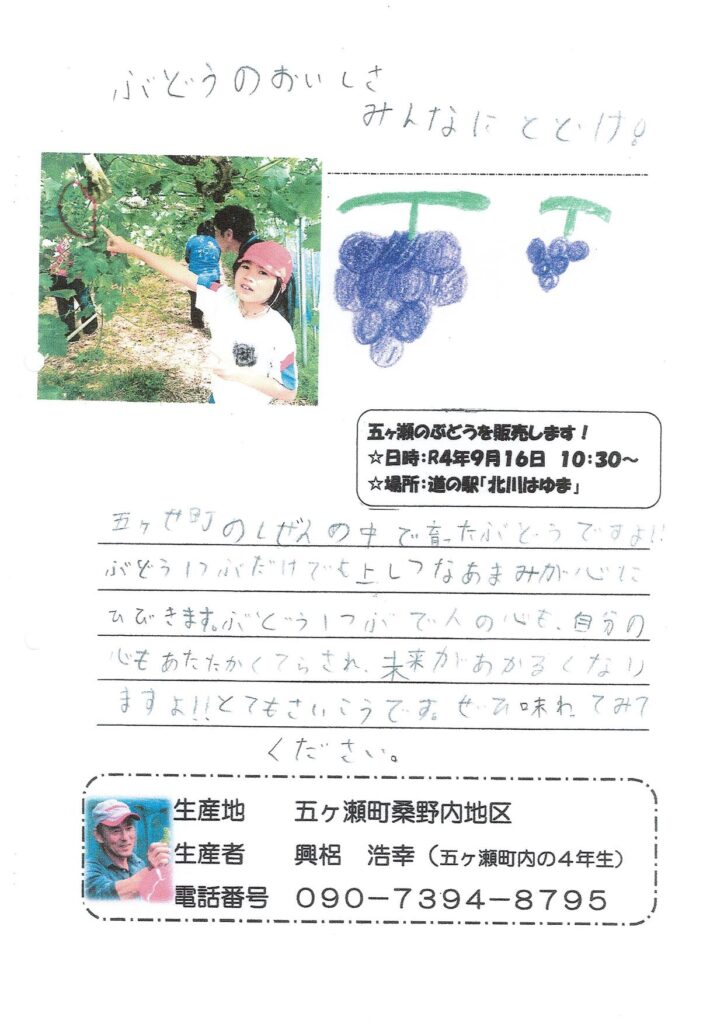 ぶどうのおいしさ
みんなにとどけ!
五ヶ瀬のぶどうを販売します！
☆日時：R4年9月16日 10：30～
☆場所：道の駅「北川はゆま」
五ヶせ町のしぜんの中で育ったぶどうですよ!!
ぶどう1つぶだけでも上しつなあまみが心に
ひびきます。ぶどう1つぶで人の心も、自分の
心もあたたかくてらされ、未来があかるくなり
ますよ!!とてもさいこうです。ぜひ味わってみて
ください。
生産地 五ヶ瀬町桑野内地区
生産者 興梠 浩幸（五ヶ瀬町内の４年生）
電話番号 ０９０－７３９４－８７９５